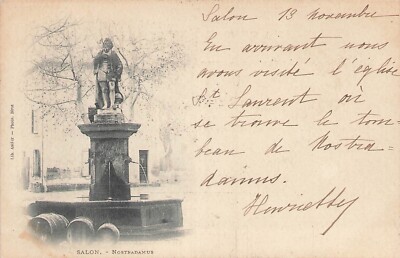 Salon 13 novembre
En arrivant nous
avons visité l'église
St Laurent où
se trouve le tom-
beau de Nostra-
damus.
Henrietty
SALON. - NOSTRADAMUS